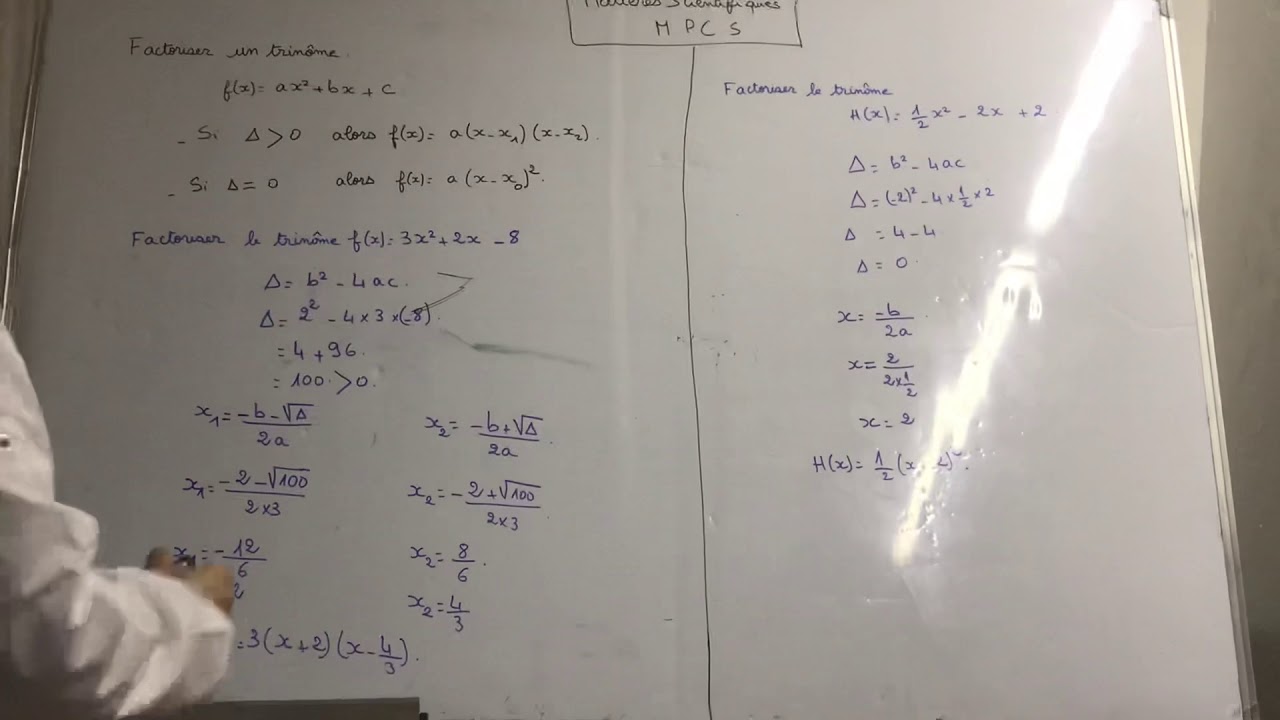 Matières Scientifiques
M P C S
Factoriser un trinôme.
f(x) = ax² + bx + c
- Si Δ > 0 alors f(x) = a(x - x₁)(x - x₂).
- Si Δ = 0 alors f(x) = a(x - x₀)².
Factoriser le trinôme f(x) = 3x² + 2x - 8
Δ = b² - 4ac.
Δ = 2² - 4 × 3 × (-8).
= 4 + 96.
= 100 > 0.
x₁ = (-b - √Δ)/2a x₂ = (-b + √Δ)/2a.
x₁ = (-2 - √100)/(2×3) x₂ = (-2 + √100)/(2×3)
x₁ = -12/6 x₂ = 8/6.
2
x₂ = 4/3
= 3(x + 2)(x - 4/3).
Factoriser le trinôme
H(x) = 1/2 x² - 2x + 2
Δ = b² - 4ac
Δ = (-2)² - 4 × 1/2 × 2
Δ = 4 - 4
Δ = 0
x = -b/2a
x = 2/(2×1/2)
x = 2
H(x) = 1/2 (x - 2)².